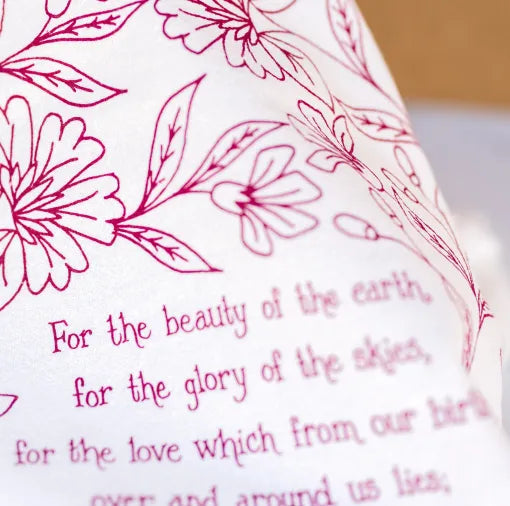 For the beauty of the earth,
for the glory of the skies,
for the love which from our birth
over and around us lies;